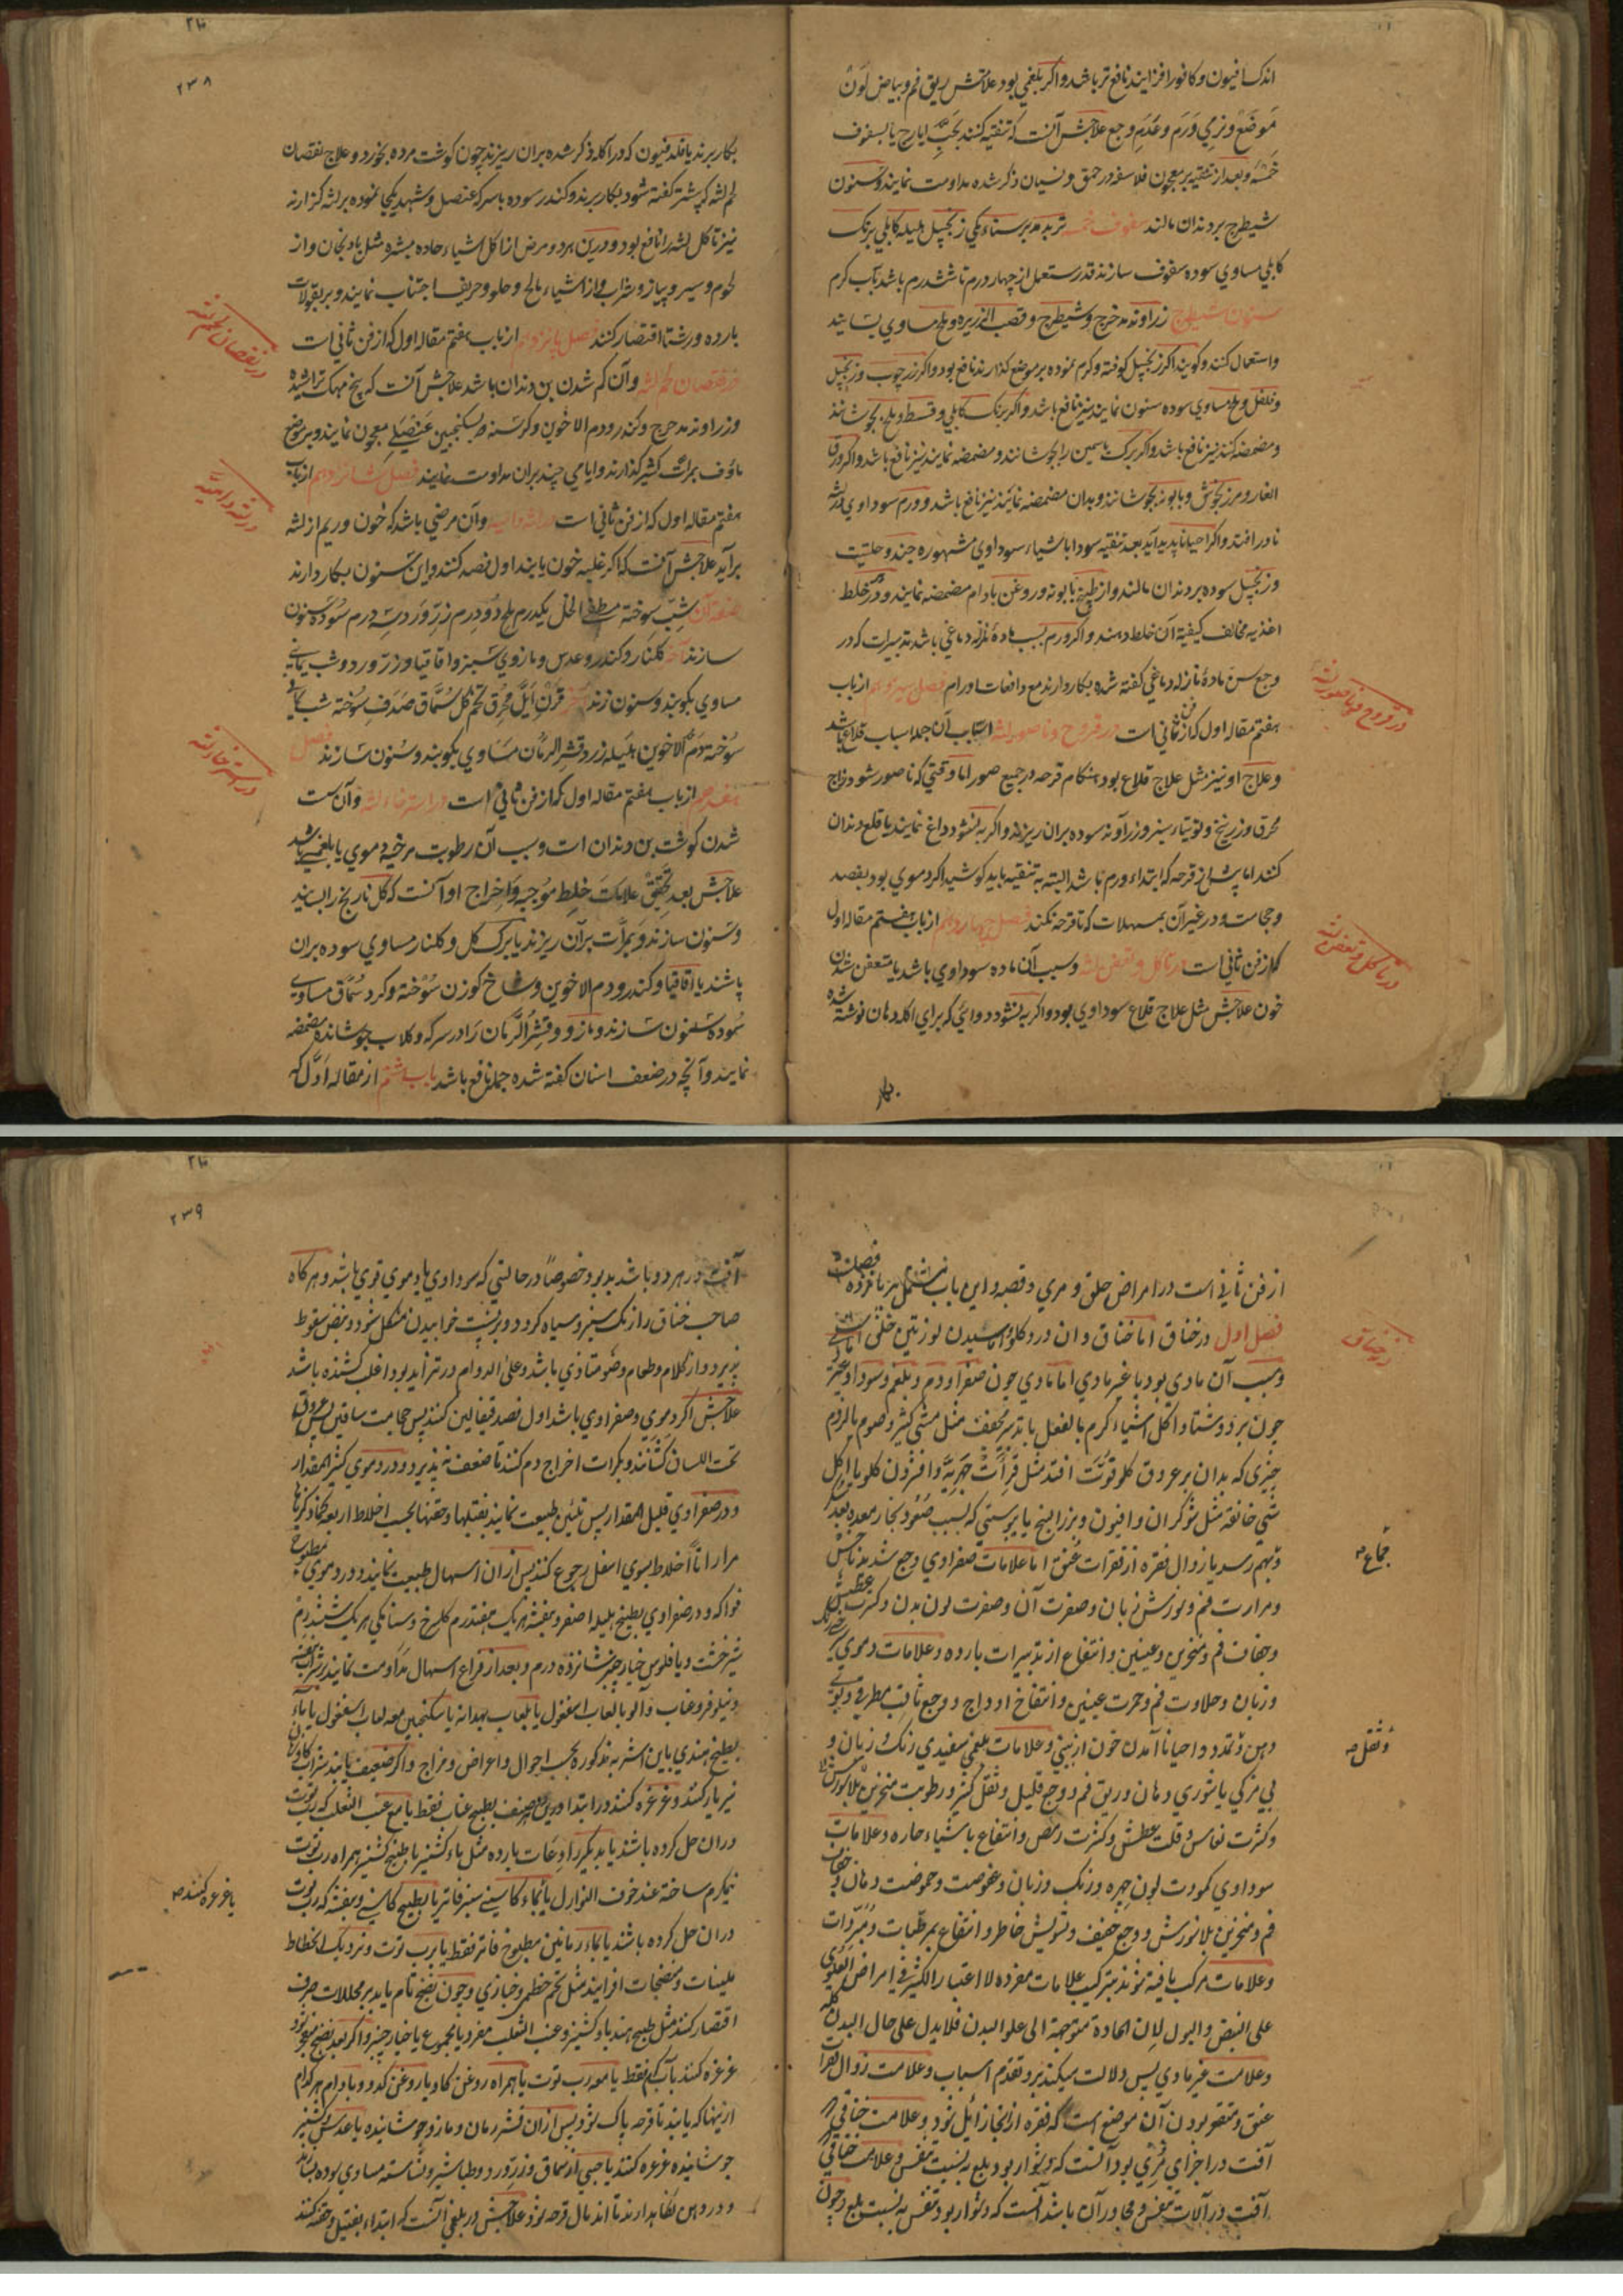 اندک افیون و کافور افزایند نافع تر باشد و اکر بلغمی بود علامتش ریق فم و بیاض لون
موضع و نرمی ورم و عدم وجع علاجش آنست که تنقیه کنند بحب ایارج یا بسفوف
خمسه و بعد از تنقیه بر معجون فلاسفه در حمق و نسیان ذکر شده مداومت نمایند و سنون
شیطرج بر دندان مالند سفوف خمسه تربد مدبر سناء مکی زنجبیل هلیله کابلی برنک
کابلی مساوی سوده سفوف سازند قدر مستعمل از چهار درم تا شش درم باشد بآب کرم
سنون شیطرج زراوند مدحرج و شیطرج و قصب الذریره و ملح مساوی بسایند
واستعمال کنند و کویند اکر زنجبیل کوفته و کرم نموده بر موضع کذارند نافع بود و اکر زرچوب و زنجبیل
و فلفل و ملح مساوی سوده سنون نمایند نیز نافع باشد و اکر برنک کابلی و قسط و ملح بجوشانند
و مضمضه کنند نیز نافع باشد و اکر برک یاسمین را بجوشانند و مضمضه نمایند نیز نافع باشد و اکر ورق
الغار و مرزنجوش و بابونه بجوشانند و بدان مضمضه نمایند نیز نافع باشد و ورم سوداوی در لثه
نادر افتد و اکر احیانا پدید آید بعد تنقیه سودا باشیاء سوداوی مشهوره جند و حلتیت
و زنجبیل سوده بر دندان مالند و از طبیخ بابونه و روغن بادام مضمضه نمایند و در هر خلط
اغذیه مخالف کیفیة آن خلط دهند و اکر ورم بسبب ماده نزله دماغی باشد تدبیرات که در
وجع سن ماده نازله دماغی کفته شده بکار دارند مع رادعات اورام فصل سیزدهم از باب
هفتم مقاله اول که از فن ثانی است در قروح و ناصور لثه اسباب آن جمله اسباب قلاع باشد
و علاج او نیز مثل علاج قلاع بود هنکام قرحه در جمیع صور اما وقتی که ناصور شود زاج
محرق و زرنیخ و توتیاء سبز و زراوند سوده بران ریزند و اکر به نشود داغ نمایند یا قلع دندان
کنند اما پیش از قرحه که ابتداء ورم باشد البته به تنقیه باید کوشید اکر دموی بود بفصد
و حجامت و در غیر آن بمسهلات که تا قرحه نکند فصل چهاردهم از باب هفتم مقاله اول
که از فن ثانی است در تاکل و تعفن لثه و سبب آن ماده سوداوی باشد یا متعفن شدن
خون علاجش مثل علاج قلاع سوداوی بود و اکر به نشود دوائی که برای اکله دهان نوشته شده
بکار
در قروح و ناصور لثه
در تاکل و تعفن لثه
۲۳۸
بکار برند یا فلدفیون که در آکله ذکر شده بران ریزند چون کوشت مرده بخورد و علاج نقصان
لحم لثه که پیشتر کفته شود بکار برند و کندر سوده با سرکه عنصل و شهد یکجا نموده بر لثه کزارند
نیز تاکل لثه را نافع بود و درین هر دو مرض از اکل اشیاء حاده مبثره مثل بادنجان و از
لحوم و سیر و پیاز و شراب و از اشیاء مالح و حلو و حریف اجتناب نمایند و بر بقولات
بارده و رشتا اقتصار کنند فصل پانزدهم از باب هفتم مقاله اول که از فن ثانی است
در نقصان لحم لثه و آن کم شدن بن دندان باشد علاجش آنست که بیخ مهک تراشیده
و زراوند مدحرج و کندر و دم الاخوین و کرسنه بسکنجبین عنصلی معجون نمایند و بر موضع
ماوف بمرات کثیر کذارند و ایامی چند بران مداومت نمایند فصل شانزدهم از باب
هفتم مقاله اول که از فن ثانی است در لثه دامیه و آن مرضی باشد که خون و ریم از لثه
برآید علاجش آنست که اکر غلبه خون یابند اول فصد کنند و این سنون بکار دارند
صفة آن شب سوخته مطفی الخل یکدرم ملح دو درم زر ورد سه درم سوده سنون
سازند آخر کلنار و کندر و عدس و مازوی سبز و اقاقیا و زر ورد و شب یمانی
مساوی بکوبند و سنون زنند قرن ایل محرق تخم کل سماق صدف سوخته شب یمانی
سوخته دم الاخوین هلیله زرد قشر الرمان مساوی بکوبند و سنون سازند فصل
هفدهم از باب هفتم مقاله اول که از فن ثانی است در استرخاء لثه و آن سست
شدن کوشت بن دندان است و سبب آن رطوبت مرخیه دموی یا بلغمی باشد
علاجش بعد تحقیق علامات خلط موجبه و اخراج او آنست که کل نار یخ را بسایند
و سنون سازند و بمرات برآن ریزند یا برک کل و کلنار مساوی سوده بران
پاشند یا اقاقیا و کندر و دم الاخوین و شاخ کوزن سوخته و کرد سماق مساوی
سوده سنون سازند و مازو و قشر الرمان را در سرکه و کلاب جوشانده مضمضه
نمایند و آنچه در ضعف اسنان کفته شده جمله نافع باشد باب هشتم از مقاله اول که
در نقصان لحم لثه
در لثه دامیه
در استرخاء لثه
از فن ثانی است در امراض حلق و مری و قصبه و این باب مشتمل بر پانزده فصل است
فصل اول در خناق اما خناق و ان درد کلو و آماسیدن لوزتین خلفی است
و سبب آن مادی بود یا غیر مادی اما مادی چون صفرا و دم و بلغم و سودا و غیر مادی
چون برد و شتا و اکل اشیاء کرم بالفعل یا تدبیر مجفف مثل مشی کثیر و صوم یا لزوم
چیزی که بدان بر عروق کلو قوت افتد مثل قرأت جهریه و افزون کلو یا اکل
شی خانقه مثل شوکران و افیون و بزر البنج یا یبوستی که بسبب صعود بخار معده بعد
و بهم رسد یا زوال فقره از فقرات عنق اما علامات صفراوی وجع شدید ناخس
و مرارت فم و لوزش زبان و صفرت آن و صفرت لون بدن و کثرت عطش
و جفاف فم و منخرین و عینین و انتفاع از تدبیرات بارده و علامات دموی سرخی رنک
و زبان و حلاوت فم و حمرت عینین و انتفاخ اوداج و وجع ثاقب مطرقی و بوی
دهن و تمدد و احیانا آمدن خون از بینی و علامات بلغمی سفیدی رنک و زبان و
بی مزکی یا شوری دهان و ریق فم و وجع قلیل و ثقل کثیر و رطوبت منخرین بلا سوزش
و کثرت نعاس و قلت عطش و کثرت رمص و انتفاع باشیاء حاره و علامات
سوداوی کمودت لون چهره و رنک و زبان و عفوصت و حموضت دهان و جفاف
فم و منخرین بلا سوزش و وجع خفیف و تشویش خاطر و انتفاع بمرطبات و مبردات
و علامات مرکب یافته شوند بترکیب علامات مفرده لا اعتبار الکثیر فی امراض العلیا
علی النبض و البول لان المادة متوجهة الی علو البدن فلا یدل علی حال البدن کله
و علامت غیر مادی پس دلالت میکند بر و تقدم اسباب و علامت زوال فقرات
عنق متقعر بودن آن موضع است که فقره از انجا زائل شود و علامت خناقی که
آفت در اجزای مری بود آنست که دشوار بود بلع به نسبت تنفس و علامت خناقی که
آفت در آلات تنفس و مجاور آن باشد آنست که دشوار بود تنفس به نسبت بلع و چون
در خناق
جماع صح
و ثقل صح
۲۳۹
آفت در هر دو باشد بد بود خصوصا در حالتی که سوداوی یا دموی قوی باشد و هرکاه
صاحب خناق را رنک سبز و سیاه کردد و بر پشت خوابیدن مشکل شود و نبض سقوط
پذیرد و از کلام و طعام و ضوء متاذی باشد و علی الدوام در تزاید بود اغلب کشنده باشد
علاجش اکر دموی و صفراوی باشد اول فصد قیفالین کنند پس حجامت ساقین پس عروق
تحت اللسان کشانند و بکرات اخراج دم کنند تا ضعف نه پذیرد و در دموی کثیر المقدار
و در صفراوی قلیل المقدار پس تلیین طبیعت نمایند بفتیلها و حقنها بحسب اخلاط اربعه کما ذکرناها
مرارا تا اخلاط بسوی اسفل رجوع کنند پس ازان اسهال طبیعت نمایند و در دموی مطبوخ
فواکه و در صفراوی بطبیخ هلیله اصفر و بنفشه هر یک هفتدرم کلسرخ و سنا مکی هر یک شش درم
شیرخشت و یا فلوس خیار چنبر شانزده درم و بعد از فراغ اسهال مداومت نمایند بر شراب بنفشه
و نیلوفر و عناب و آلو با لعاب اسبغول یا بلعاب بهدانه یا سکنجبین مع لعاب اسبغول یا بآب
بطیخ هندی باین اشربه مذکوره بحسب احوال و اعراض و مزاج و اکر ضعیف یابند شراب کاوزبان
نیز یار کنند و غرغره کنند در ابتدا درین صنف بطبیخ عناب فقط یا مع عنب الثعلب که رب توت
دران حل کرده باشند یا بدیکر رادعات بارده مثل ماء کشنیز یا طبیخ کشنیز همراه رب توت
نیکرم ساخته عند خوف النوازل یا بماء کاسنی سبز فاتر یا بطبیخ کاسنی و بنفشه که رب توت
دران حل کرده باشند یا بماء رمانین مطبوخ فاتر فقط یا برب توت و نزدیک انحطاط
ملینات و منضجات افزایند مثل تخم خطمی و خبازی و چون نضج تام یابد بر محللات صرف
اقتصار کنند مثل طبیخ هندباء و کشنیز و عنب الثعلب مفرد یا مجموع یا خیار چنبر و اکر بعد نضج منفجر شود
غرغره کنند بآب کرم فقط یا مع رب توت یا همراه روغن کاو یا روغن کدو و بادام هر کدام
ازینها که یابند تا قرحه پاک شود پس ازان قشر رمان و مازو جوشانیده یا عدس و کشنیز
جوشانیده غرغره کنند یا حبی از سماق و زر ورد و طباشیر و نشاسته مساوی سوده بسازند
و در دهن نکاهدارند تا اندمال قرحه شود علاجش در بلغمی آنست که ابتداء بفتیل و حقنه کنند
یا غرغره کنند صح